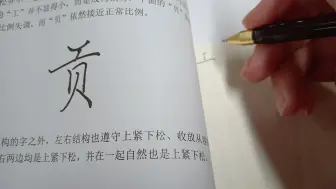 比例失调，而“贡”依然接近正常比例。
贡
构的字之外，左右结构也遵守上紧下松、收放从
右两边均是上紧下松，并在一起自然也是上紧下松